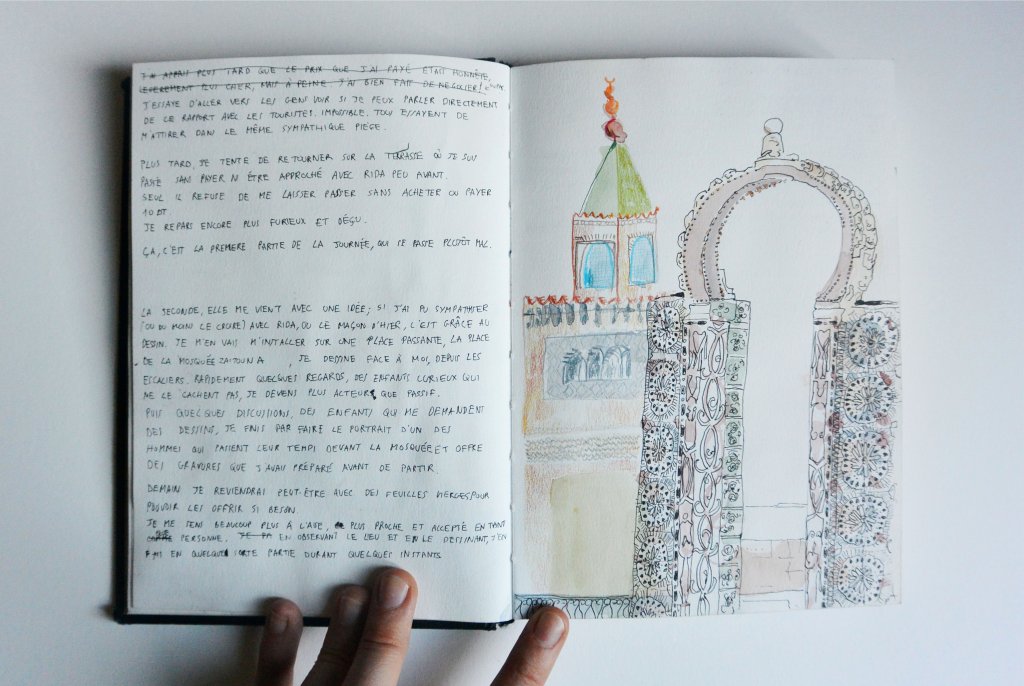 J'AI APPRIS PLUS TARD QUE LE PRIX QUE J'AI PAYÉ ÉTAIT HONNÊTE,
LEGEREMENT PLUS CHER, MAIS À PEINE. J'AI BIEN FAIT DE NEGOCIER!
J'ESSAYE D'ALLER VERS LES GENS VOIR SI JE PEUX PARLER DIRECTEMENT
DE CE RAPPORT AVEC LES TOURISTES. IMPOSSIBLE. TOUS ESSAYENT DE
M'ATTIRER DANS LE MÊME SYMPATHIQUE PIÈGE.
PLUS TARD, JE TENTE DE RETOURNER SUR LA TERRASSE OÙ JE SUIS
PASSÉ SANS PAYER NI ÊTRE APPROCHÉ AVEC RIDA PEU AVANT.
SEUL IL REFUSE DE ME LAISSER PASSER SANS ACHETER OU PAYER
10 DT.
JE REPARS ENCORE PLUS FURIEUX ET DÉÇU.
ÇA, C'EST LA PREMIERE PARTIE DE LA JOURNÉE, QUI SE PASSE PLUTÔT MAL.
LA SECONDE, ELLE ME VIENT AVEC UNE IDÉE; SI J'AI PU SYMPATHISER
(OU DU MOINS LE CROIRE) AVEC RIDA, OU LE MAÇON D'HIER, C'EST GRÂCE AU
DESSIN. JE M'EN VAIS M'INSTALLER SUR UNE PLACE PASSANTE, LA PLACE
DE LA MOSQUÉE ZAITOUNA, JE DESSINE FACE À MOI, DEPUIS LES
ESCALIERS. RAPIDEMENT QUELQUES REGARDS, DES ENFANTS CURIEUX QUI
NE LE CACHENT PAS, JE DEVIENS PLUS ACTEUR QUE PASSIF.
PUIS QUELQUES DISCUSSIONS, DES ENFANTS QUI ME DEMANDENT
DES DESSINS, JE FINIS PAR FAIRE LE PORTRAIT D'UN DES
HOMMES QUI PASSENT LEUR TEMPS DEVANT LA MOSQUÉE ET OFFRE
DES GRAVURES QUE J'AVAIS PRÉPARÉ AVANT DE PARTIR.
DEMAIN JE REVIENDRAI PEUT-ÊTRE AVEC DES FEUILLES VIERGES POUR
POUVOIR LES OFFRIR SI BESOIN.
JE ME SENS BEAUCOUP PLUS À L'AISE, PLUS PROCHE ET ACCEPTÉ EN TANT
QUE PERSONNE. EN OBSERVANT LE LIEU ET EN LE DESSINANT, J'EN
FAIS EN QUELQUE SORTE PARTIE DURANT QUELQUES INSTANTS.